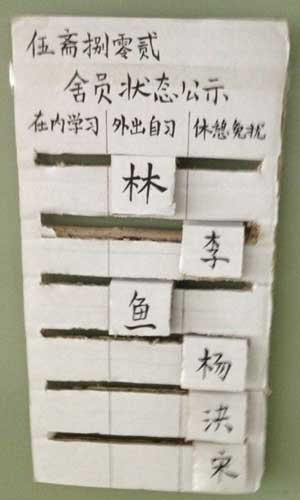 伍斋捌零贰
舍员状态公示
在内学习 外出自习 休憩免扰
林
李
鱼
杨
洪
宋